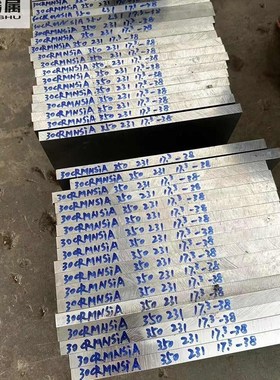 属
SHU
30CRMNSiA 350 231 17.3-38
30CRMNSiA 350 231 17.3-38
30CRMNSiA 350 231 17.3-38
30CRMNSiA 350 231 17.3-38
30CRMNSiA 350 231 17.3-38
30CRMNSiA 350 231 17.3-38
30CRMNSiA 350 231 17.3-38
30CRMNSiA 350 231 17.3-38
30CRMNSiA 350 231 17.3-38
30CRMNSiA 350 231 17.3-38
30CRMNSiA 350 231 17.3-38
30CRMNSiA 350 231 17.3-38
30CRMNSiA 350 231 17.3-38
30CRMNSiA 350 231 17.3-38
30CRMNSiA 350 231 17.3-38
30CRMNSiA 350 231 17.3-38
30CRMNSiA 350 231 17.3-38
30CRMNSiA 350 231 17.3-38
30CRMNSiA 350 231 17.3-38
30CRMNSiA 350 231 17.3-38
30CRMNSiA 350 231 17.3-38